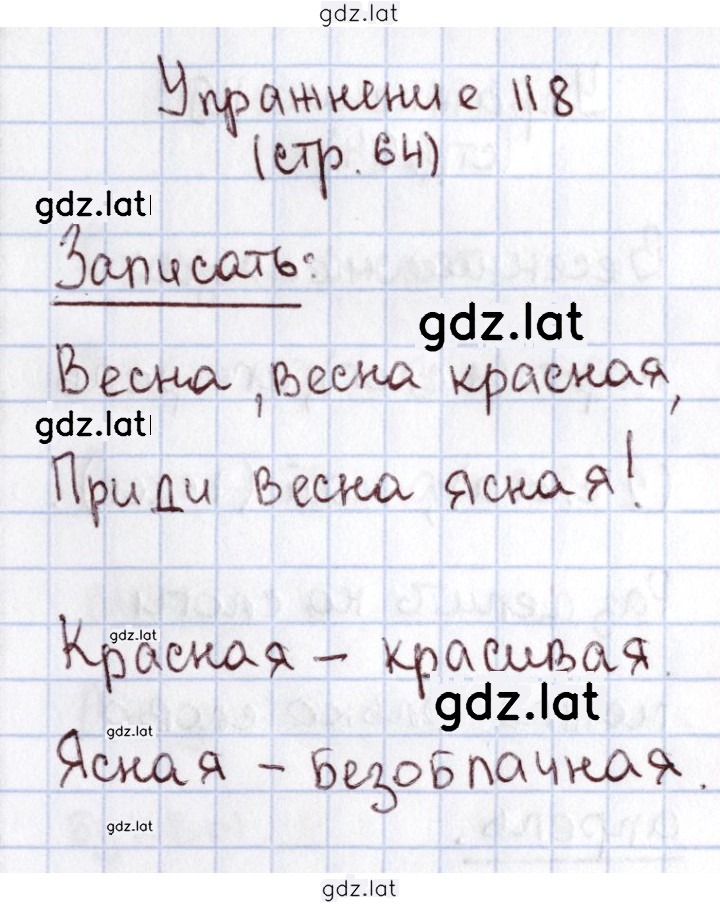 gdz.lat
Упражнение 118
(стр. 64)
gdz.lat
Записать:
gdz.lat
Весна, весна красная,
gdz.lat
Приди весна ясная!
gdz.lat
Красная – красивая.
gdz.lat
gdz.lat
Ясная – безоблачная.
gdz.lat
gdz.lat